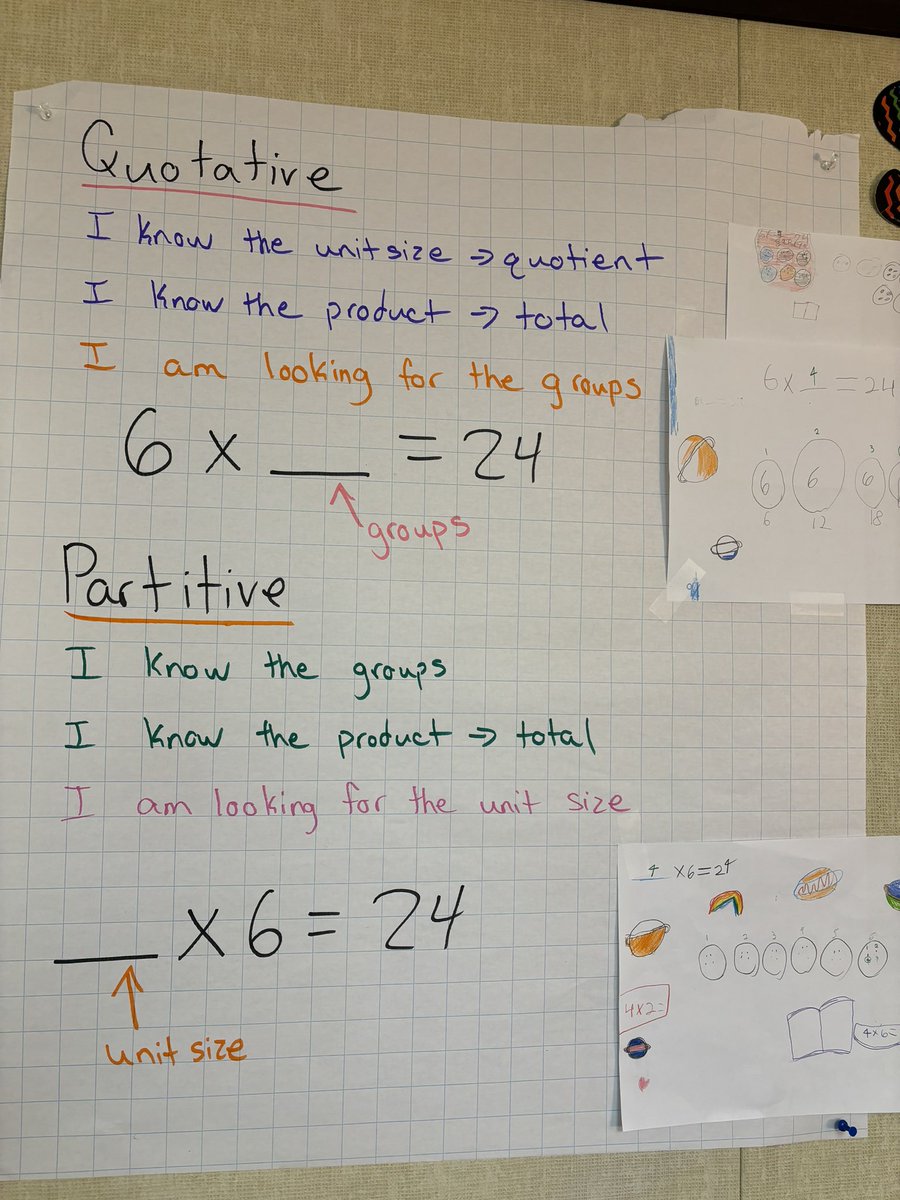 Quotative
I know the unit size → quotient
I know the product → total
I am looking for the groups
6 x __ = 24
groups
Partitive
I know the groups
I know the product → total
I am looking for the unit size
__ x 6 = 24
unit size
6 x 4 = 24
1 2 3
6 6 6
6 12 18
4 x 6 = 24
1 2 3 4 5 6
4x2=
4x6=